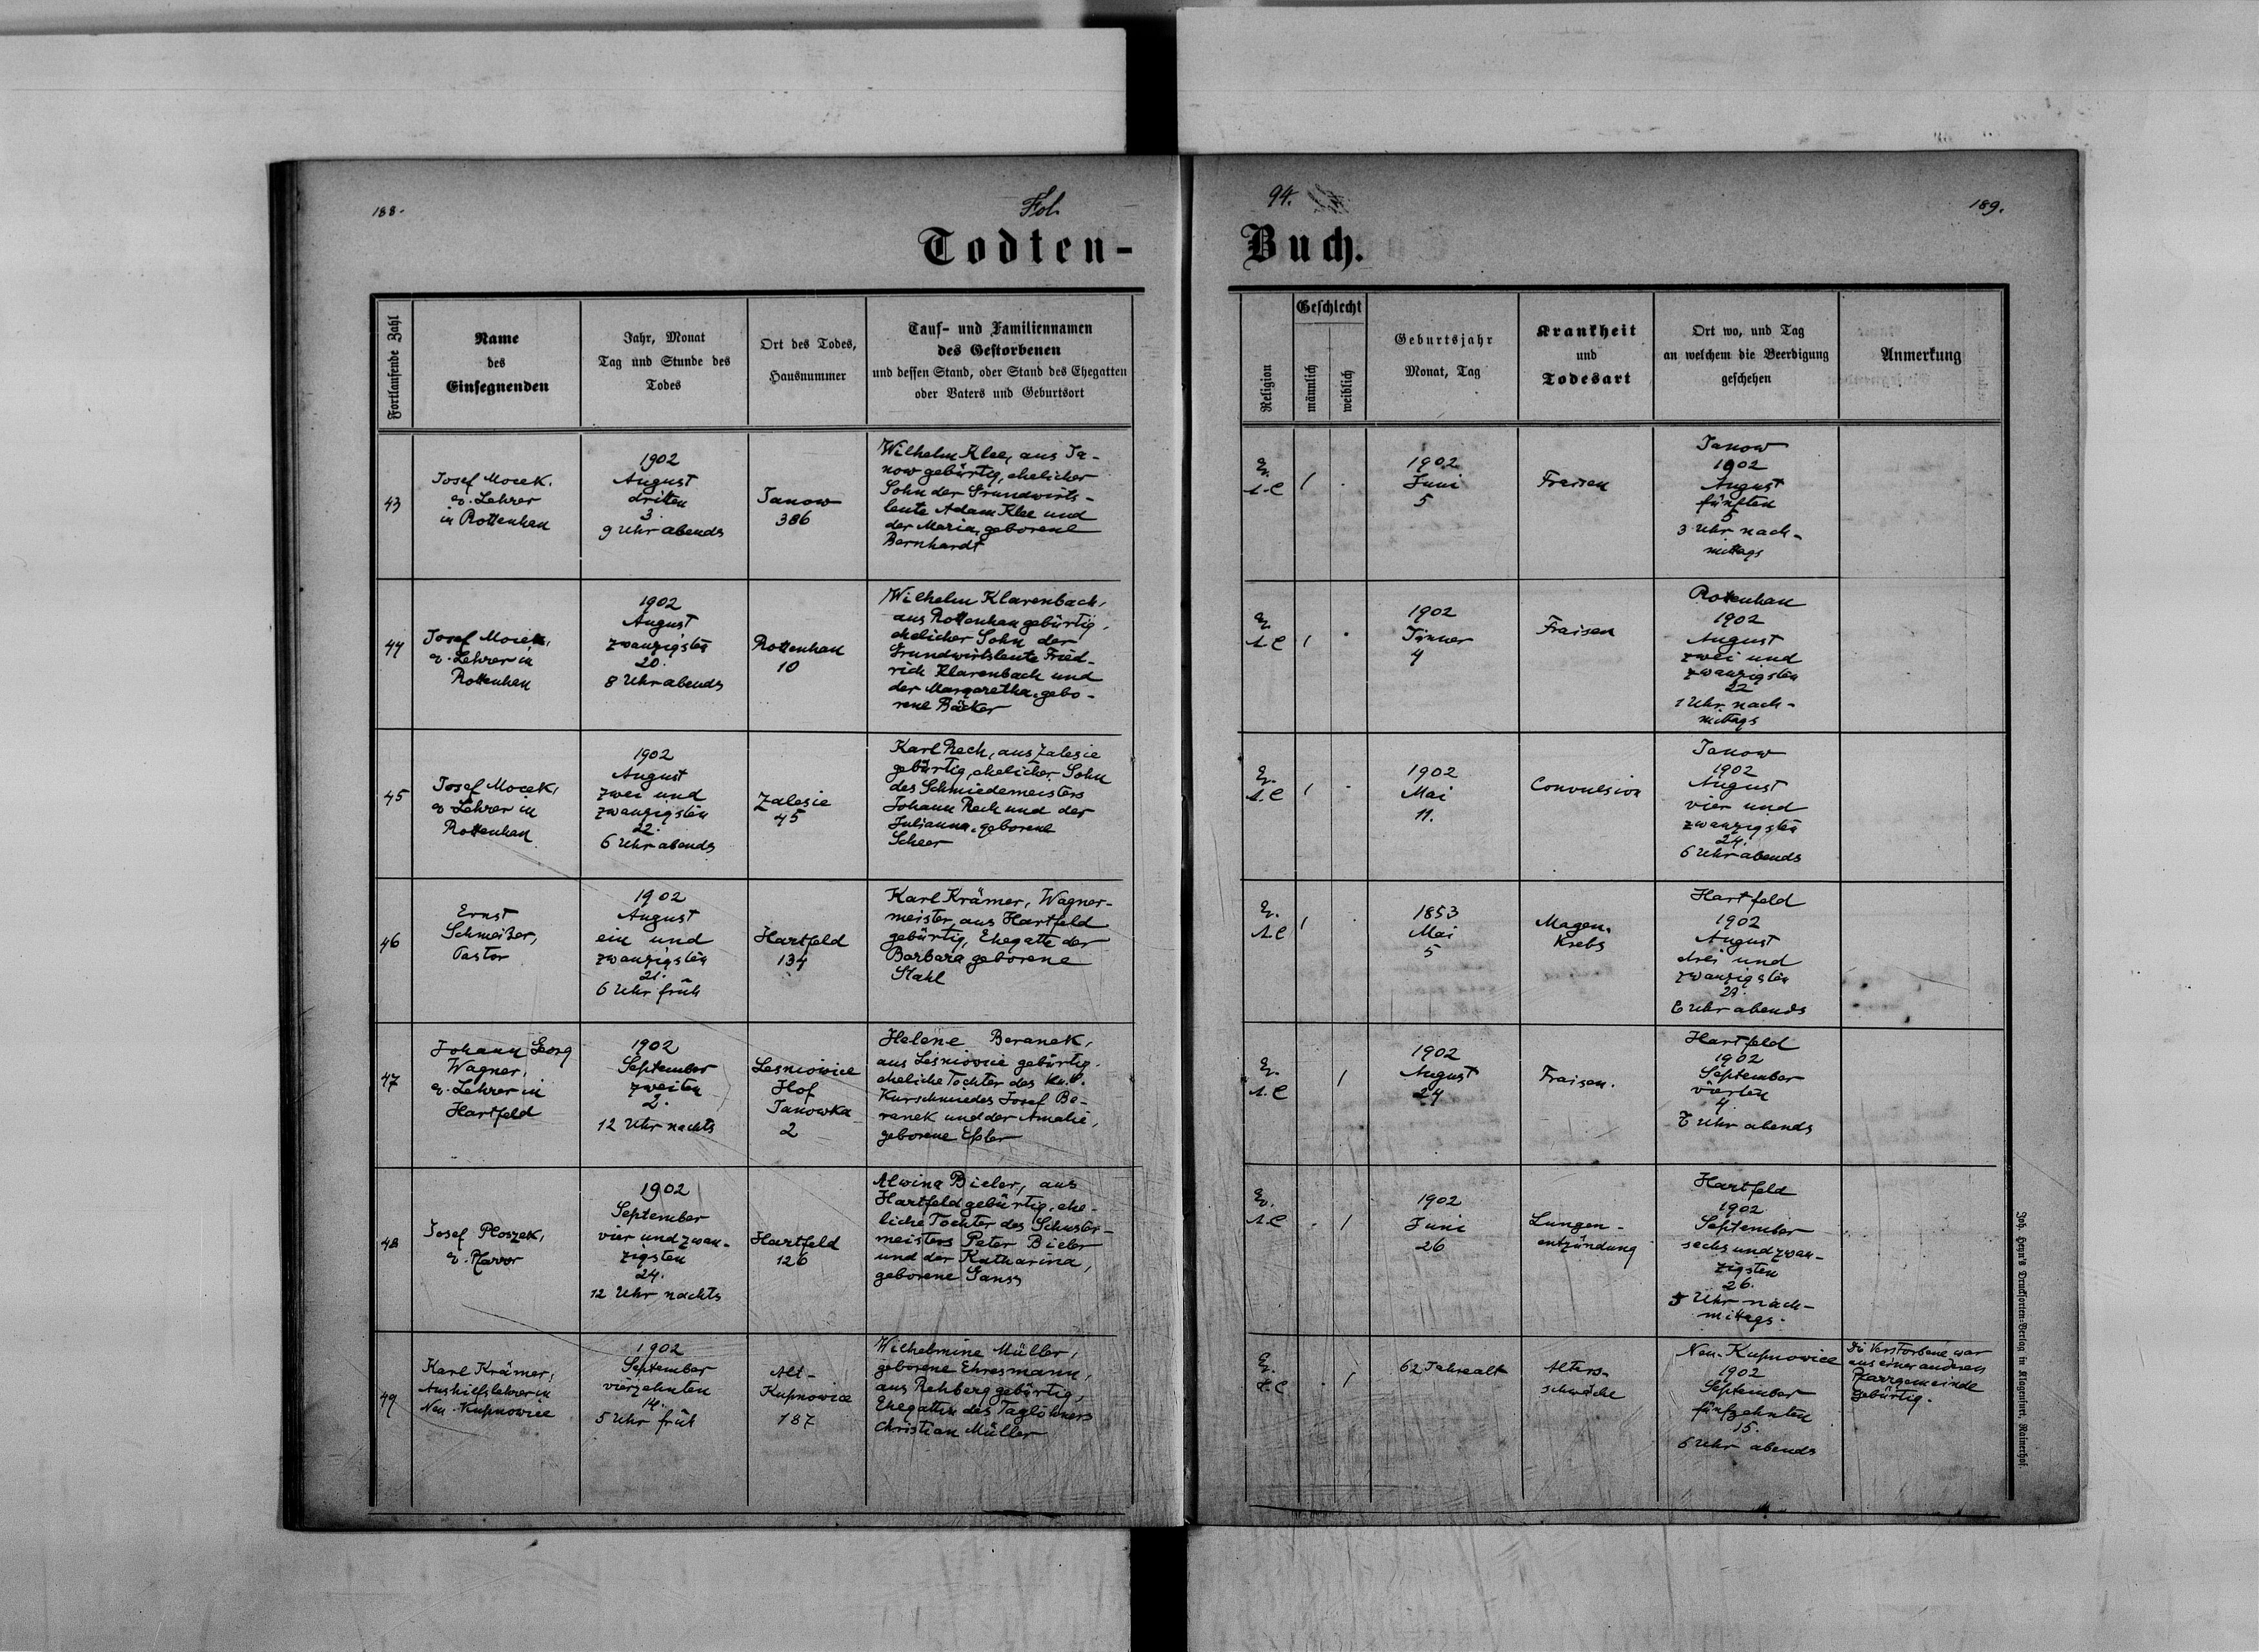 188.
Fol.
94.
189.
Todten-
Buch.
Fortlaufende Zahl
Name
des
Einsegnenden
Jahr, Monat
Tag und Stunde des
Todes
Ort des Todes,
Hausnummer
Tauf- und Familiennamen
des Gestorbenen
und dessen Stand, oder Stand des Ehegatten
oder Vaters und Geburtsort
Religion
Geschlecht
männlich
weiblich
Geburtsjahr
Monat, Tag
Krankheit
und
Todesart
Ort wo, und Tag
an welchem die Beerdigung
geschehen
Anmerkung
43
Josef Mocek,
ev. Lehrer
in Rottenhan
1902
August
dritten
3.
9 Uhr abends
Janow
386
Wilhelm Klee, aus Ja-
now gebürtig, ehelicher
Sohn der Grundwirts-
leute Adam Klee und
der Maria, geborene
Bernhardt
Ev.
A.C
1
.
1902
Juni
5
Fraisen
Janow
1902
August
fünften
5
3 Uhr nach-
mittags
44
Josef Mocek,
ev. Lehrer in
Rottenhan
1902
August
zwanzigsten
20.
8 Uhr abends
Rottenhan
10
Wilhelm Klarenbach,
aus Rottenhan gebürtig,
ehelicher Sohn der
Grundwirtsleute Fried-
rich Klarenbach und
der Margaretha, gebo-
rene Bäcker
Ev.
A.C
1
.
1902
Jänner
4
Fraisen
Rottenhan
1902
August
zwei und
zwanzigsten
22
1 Uhr nach-
mittags
45
Josef Mocek,
ev. Lehrer in
Rottenhan
1902
August
zwei und
zwanzigsten
22.
6 Uhr abends
Zalesie
45
Karl Rech, aus Zalesie
gebürtig, ehelicher Sohn
des Schmiedemeisters
Johann Rech und der
Julianna, geborene
Scheer
Ev.
A.C
1
.
1902
Mai
11.
Convulsion
Janow
1902
August
vier und
zwanzigsten
24.
6 Uhr abends
46
Ernst
Schmeißer,
Pastor
1902
August
ein und
zwanzigsten
21.
6 Uhr früh
Hartfeld
134
Karl Krämer, Wagner-
meister, aus Hartfeld
gebürtig, Ehegatte der
Barbara geborene
Stahl
Ev.
A.C
1
.
1853
Mai
5
Magen-
Krebs
Hartfeld
1902
August
drei und
zwanzigsten
23.
6 Uhr abends
47
Johann Georg
Wagner,
ev. Lehrer in
Hartfeld
1902
September
zweiten
2.
12 Uhr nachts
Lesniowice
Hof
Janowka
2
Helene Beranek,
aus Lesniowice gebürtig,
eheliche Tochter des
Kurschmiedes Josef Be-
ranek und der Amalie,
geborene Eßler
Ev.
A.C
1
1902
August
24
Fraisen.
Hartfeld
1902
September
vierten
4.
Uhr abends
48
Josef Ploszek,
ev. Pfarrer
1902
September
vier und zwan-
zigsten
24.
12 Uhr nachts
Hartfeld
126
Alwina Bieler, aus
Hartfeld gebürtig, ehe-
liche Tochter des Schuster-
meisters Peter Bieler
und der Katharina,
geborene Gans
Ev.
A.C
.
1
1902
Juni
26
Lungen-
entzündung
Hartfeld
1902
September
sechs und zwan-
zigsten
26.
5 Uhr nach-
mittags.
49
Karl Krämer,
Aushilfslehrer in
Neu-Kupnowice
1902
September
vierzehnten
14.
5 Uhr früh
Alt-
Kupnowice
187
Wilhelmine Müller,
geborene Ehresmann,
aus Rehberg gebürtig,
Ehegattin des Taglöhners
Christian Müller
Ev.
.
1
62 Jahre alt
Alters-
schwäche
Neu-Kupnowice
1902
September
fünfzehnten
15.
6 Uhr abends
Die Verstorbene war
aus einer anderen
Pfarrgemeinde
gebürtig.
Joh. Heyn's Drucksorten-Verlag in Klagenfurt, Rainerhof.